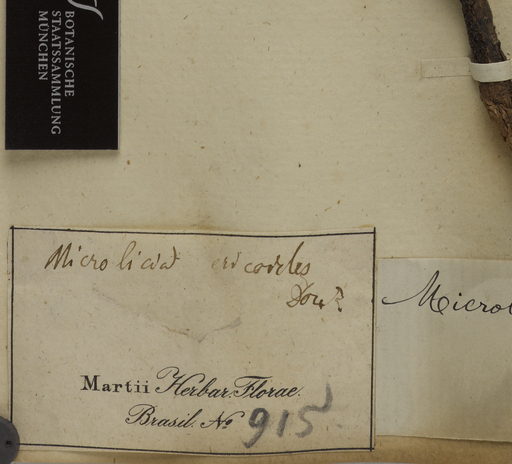 BOTANISCHE
STAATSSAMMLUNG
MÜNCHEN
Microlicia ericoides
Don?
Microl
Martii Herbar. Florae.
Brasil. No 915